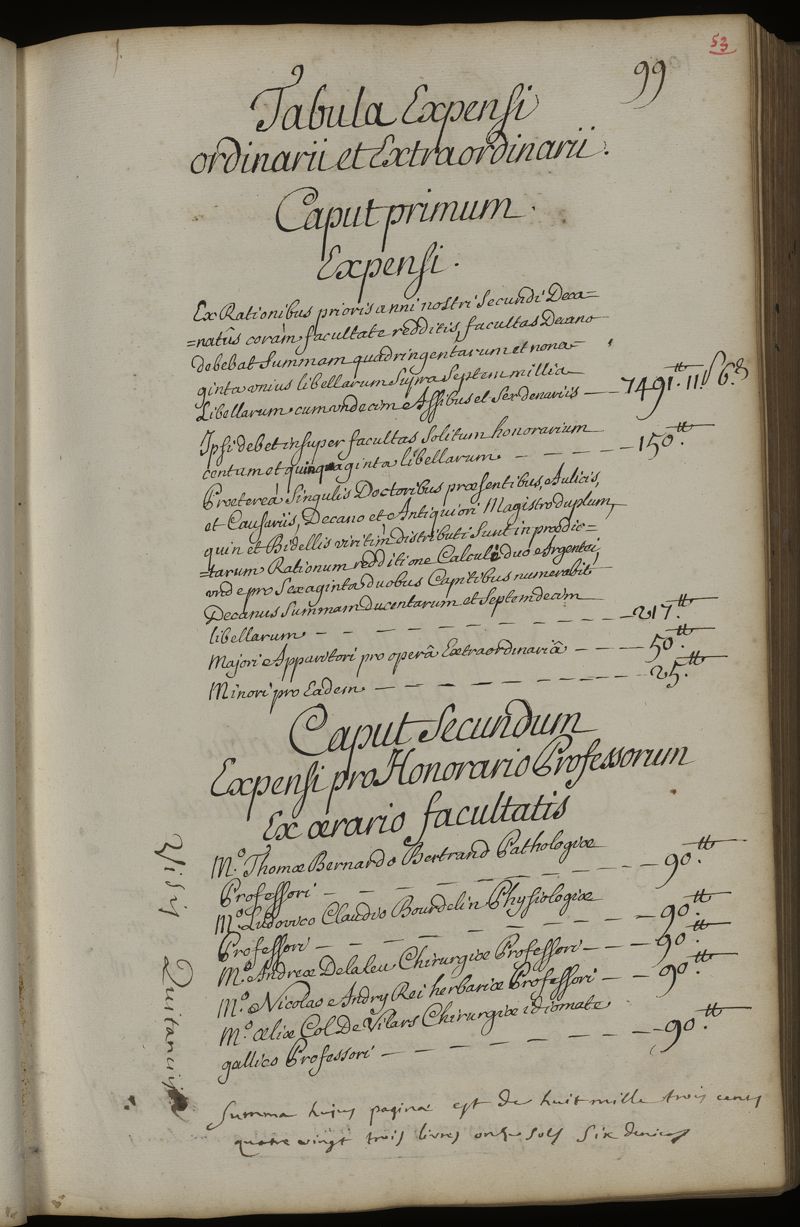 53
99
Tabula Expensi
ordinarii et Extraordinarii.
Caput primum.
Expensi.
Ex Rationibus prioris anni nostri Secundi Deca=
=natûs coràm facultate redditis, facultas Decano
debebat Summam quadringentarum et nona=
ginta unius libellarum supra Septem millia
Libellarum cum undecim Assibus et Sex denariis — 7491.tt 11.s 6.d
Ipsi debet insuper facultas Solitum honorarium
centum et quinquaginta libellarum. — — — — 150.tt
Prætereà Singulis Doctoribus præsentibus, Aulicis,
et Causariis, Decano et Antiquiori Magistro duplum,
quin et Bidellis viritìm distributi Sunt in prædic=
=tarum Rationum redditione Calculi duo Argentei,
unde pro Sexaginta duobus Capitibus numerabit
Decanus Summam ducentarum et Septemdecim
libellarum — — — — — — — — — 217.tt
Majori Apparitori pro operâ Extraordinariâ — — — 50.tt
Minori pro Eadem — — — — — — — — 25.tt
Caput Secundum
Expensi pro Honorario Professorum
Ex ærario facultatis
M.o Thomæ Bernardo Bertrand Pathologiæ
Professori — — — — — — — — 90.tt
M.o Ludovico Claudio Bourdelin Physiologiæ
Professori — — — — — — — — 90.tt
M.o Andreæ Delaleu Chirurgiæ Professori — — — 90.tt
M.o Nicolao Andry Rei herbariæ Professori — — 90.tt
M.o Æliæ Col De Vilars Chirurgiæ idiomate
gallico Professori — — — — — — — 90.tt
Visis Quitanciis
Summa hujus paginæ est de huit mille trois cents
quatre vingt trois livres onze sols Six deniers